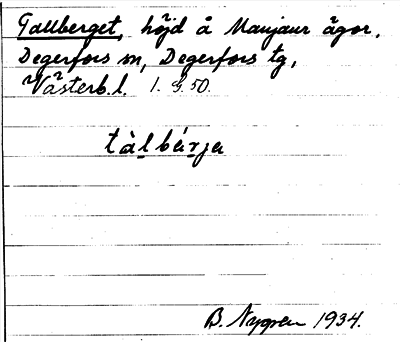 Tallberget, höjd å Manjaur ägor.
Degerfors sn, Degerfors tg,
Västerb.l. 1.9.50.
tàlbárja
B. Nygren 1934.